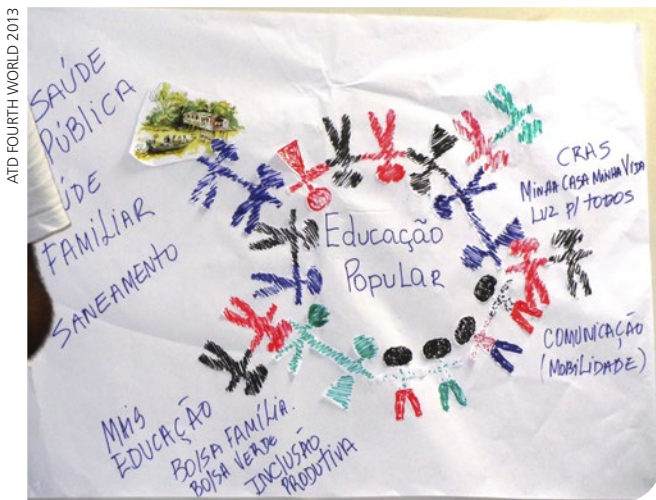 ATD FOURTH WORLD 2013
SAÚDE
PÚBLICA
FAMÍLIAR
SANEAMENTO
Educação
Popular
CRAS
MINHA CASA MINHA VIDA
LUZ P/ TODOS
COMUNICAÇÃO
(MOBILIDADE)
MAIS
EDUCAÇÃO
BOLSA FAMÍLIA.
BOLSA VERDE
INCLUSÃO
PRODUTIVA